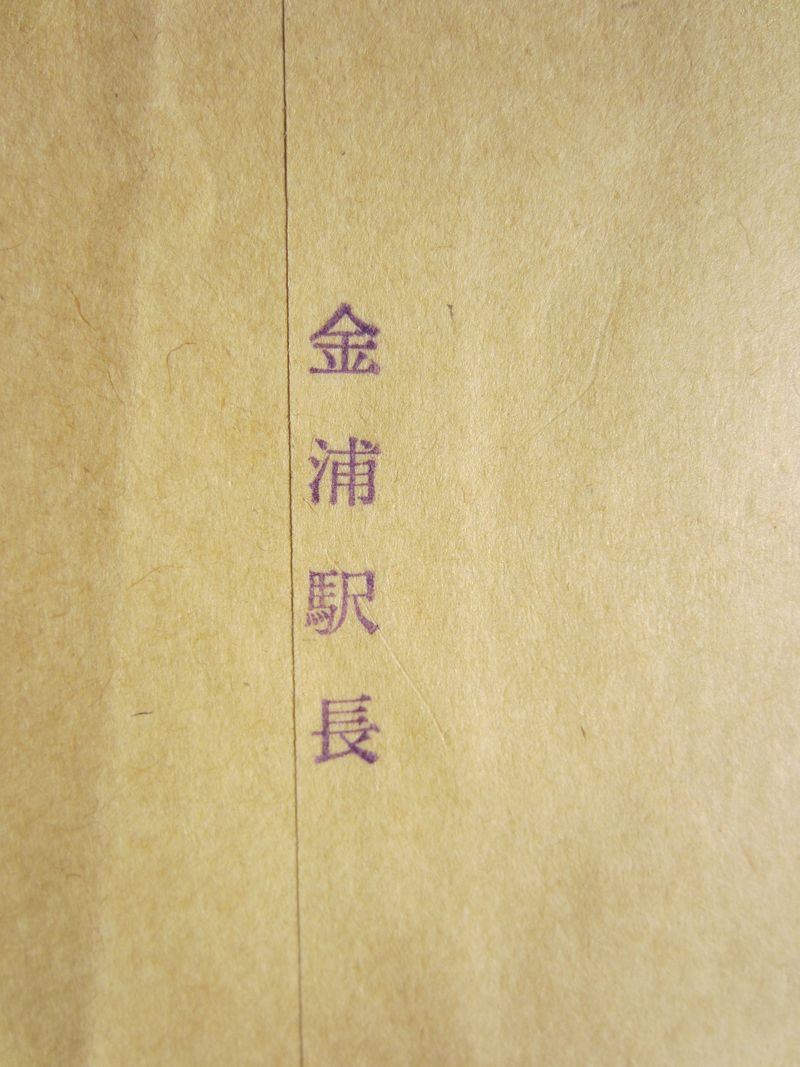 金浦駅長